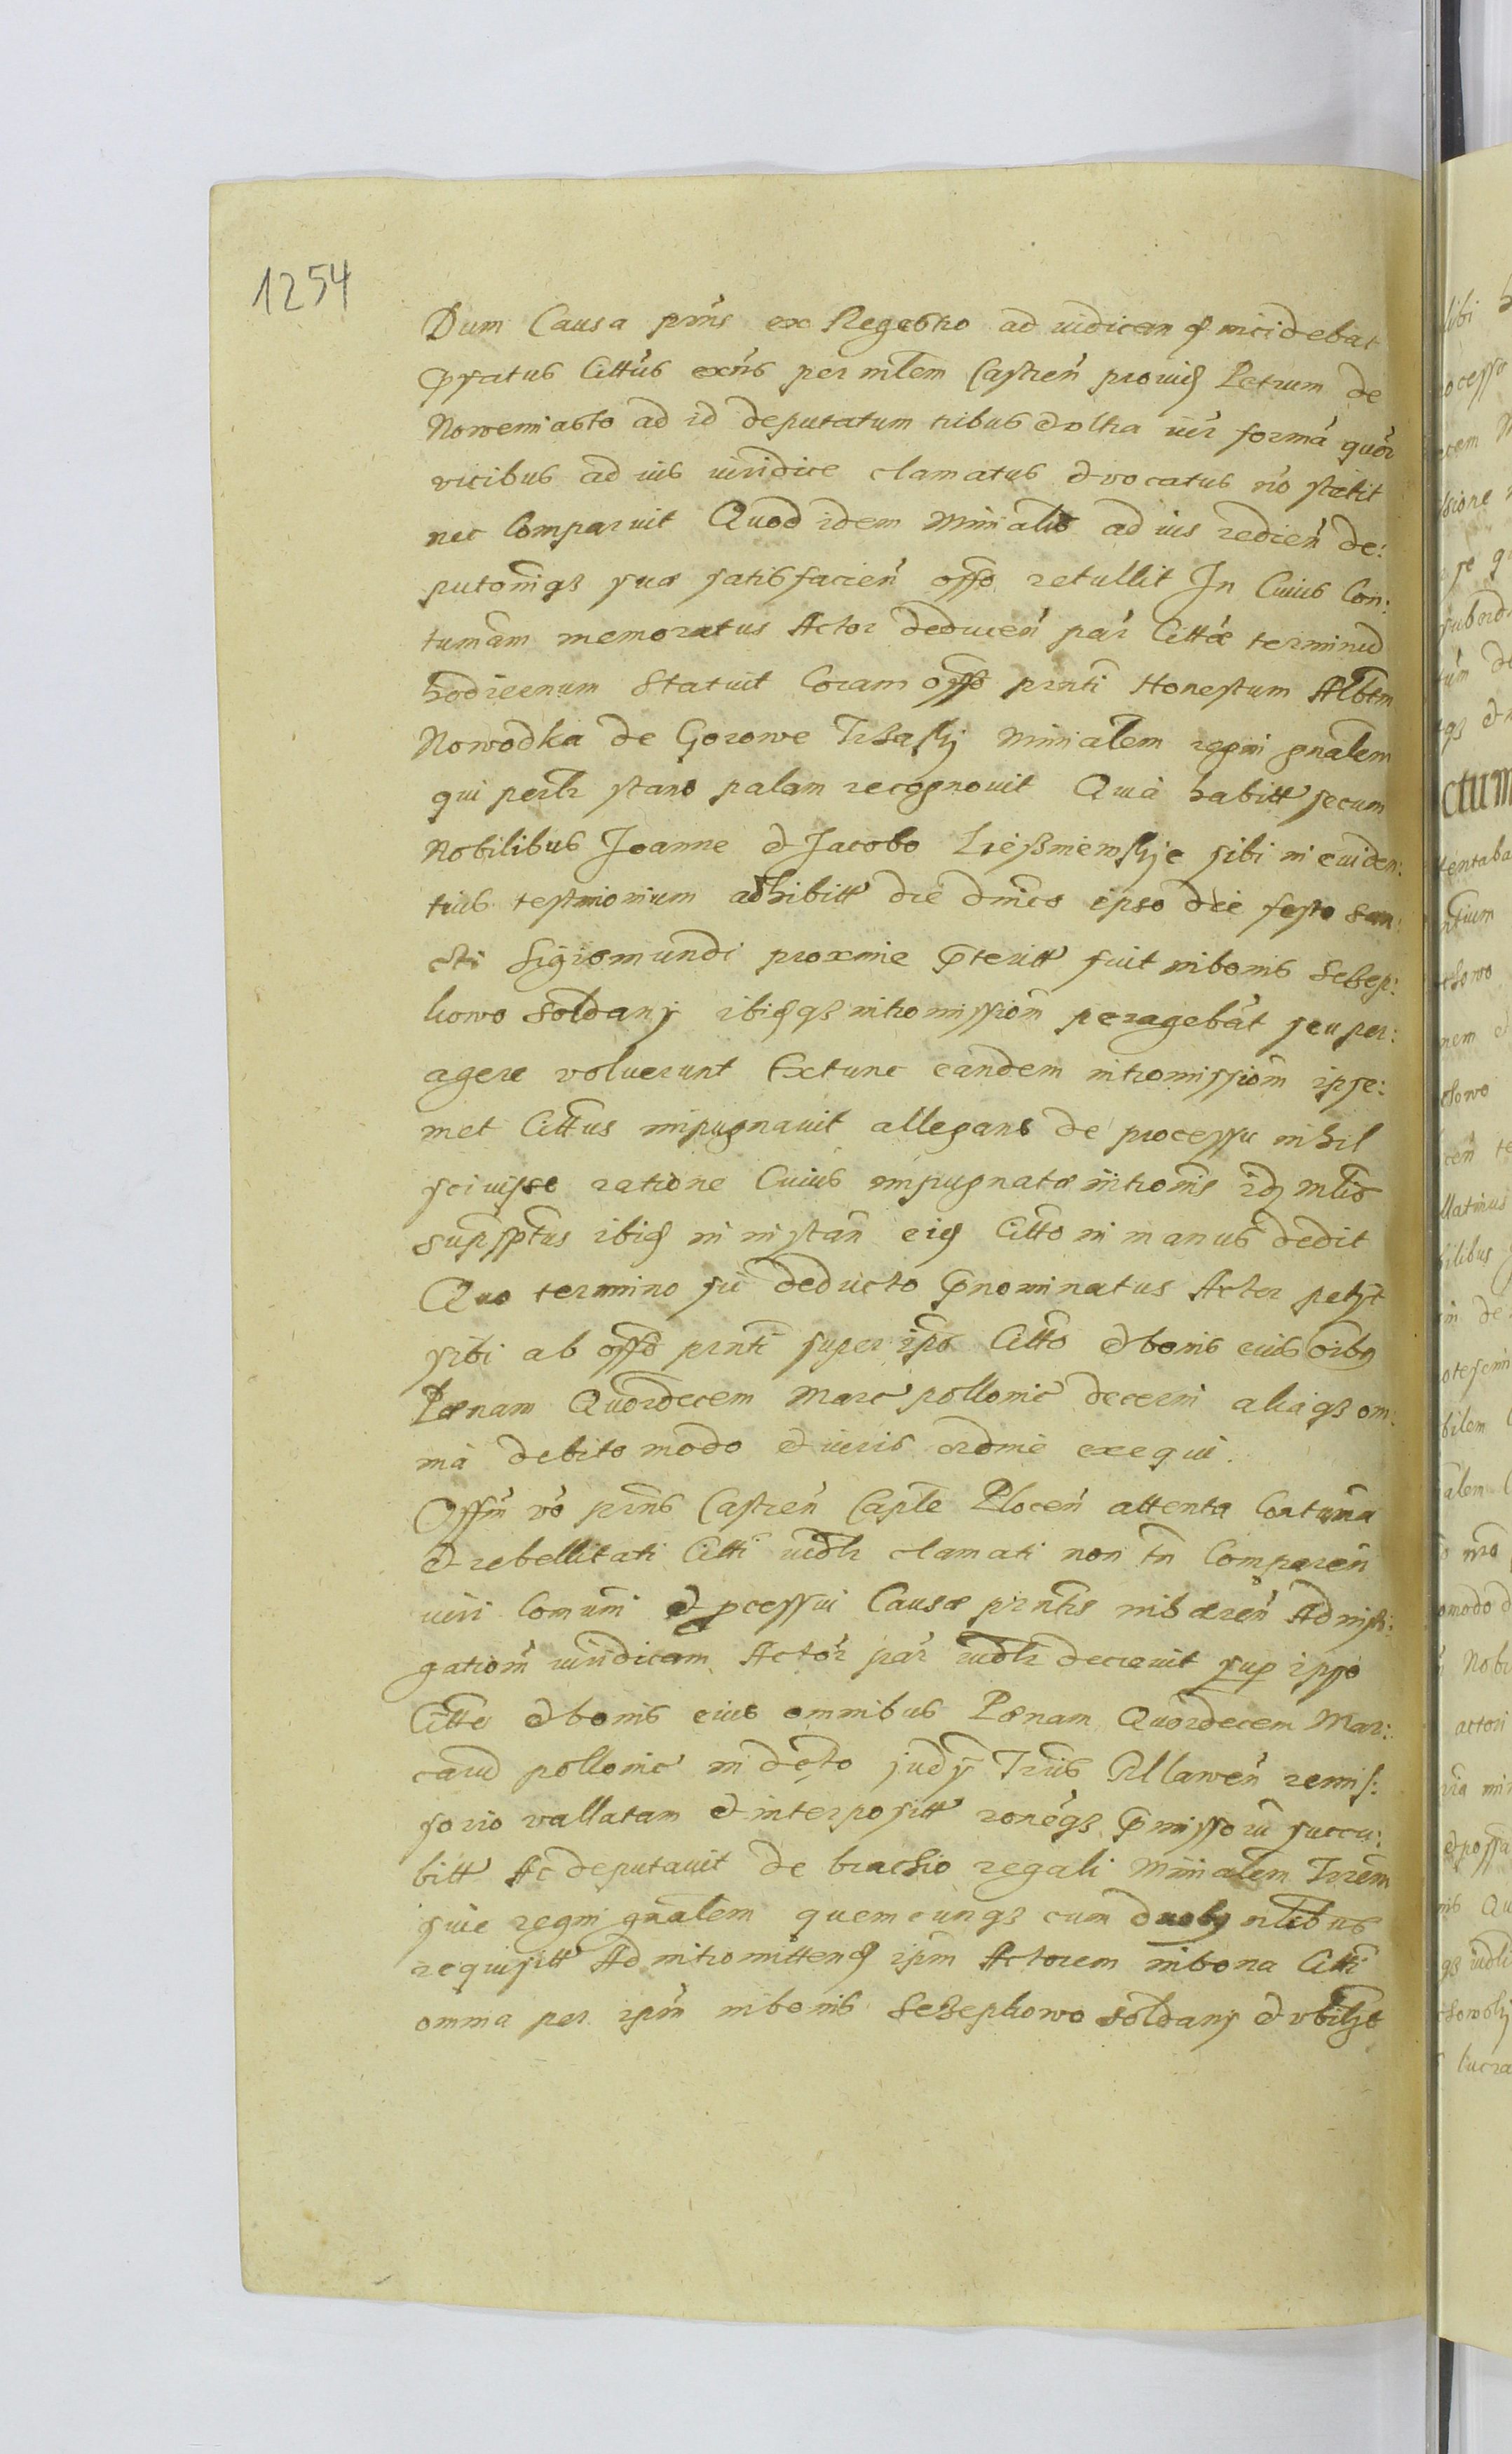 1254
Dum Causa prñs ex Regestro ad iudican̄d incidebat
p̄fatus Cittūs exñs per mlem Castreñ prouid Petrum de
Nowemiasto ad id deputatum tribus et ultra iur̄ formā quor̄
vicibus ad ius iuridice clamatus et vocatus nō stetit
nec Comparuit Quod idem Minialis ad ius redieñ de:
putōniqз suæ satisfacieñ offo retullit In Cuius Con:
tumām memoratus Actor deduceñ par̄ Cittæ terminū
hodiernum Statuit Coram offō prnti Honestum Albtm
Nowodka de Gorowe Trzaski Minialem regni gnalem
qui perlr stans palam recognouit Quià habitt secum
Nobilibus Joanne et Jacobo sibi in euiden:
tius testmonium adhibitt die dnico ipso die festo san:
cti Sigismundi proxime p̄teritt fuit inbonis Sczep:
kowo Soldany ibidqз intromissiom peragebāt seu per:
agere voluerunt Extunc eandem intromissiom ipse:
met Cittus impugnauit allegans de processu nihil
sciuisse ratione Cuius impugnatæ intromis idz mlis
suprsptus ibid in instan̄ eid Citto in manus dedit
Quo termino sic deducto p̄nominatus Actor petijt
sibi ab offo prnti super ipso Citto et bonis eius oibus
Pœnam Quordecem Marc pollonic decerni aliaqз om:
nia debito modo et iuris ordine exequi.
Offm vō prñs Castreñ Caple Ploceñ attenta Contuma
et rebellitati Citti iudlr clamati non tn̄ Compareñ
iuri Comuni et pcessui Causæ prntis inhæreñ Ad insti:
gatiom iuridicam Actor̄ par̄ iudlr decreuit sup ipso
Citto et bonis eius omnibus Pœnam Quordecem Mar:
carū pollonic in decto judy Trūs Mlaweñ remis:
sorio vallatam et interpositt ronēqз p̄missorū succu:
bitt Ac deputauit de brachio regali Minialem Trrem
siue regni gnalem quemcunqз cum duobus nlibus
requisitt Ad intromittend ipm Actorem inbona Citti
omnia per ipm inbonis Sczepkowo Soldany et vbilzt